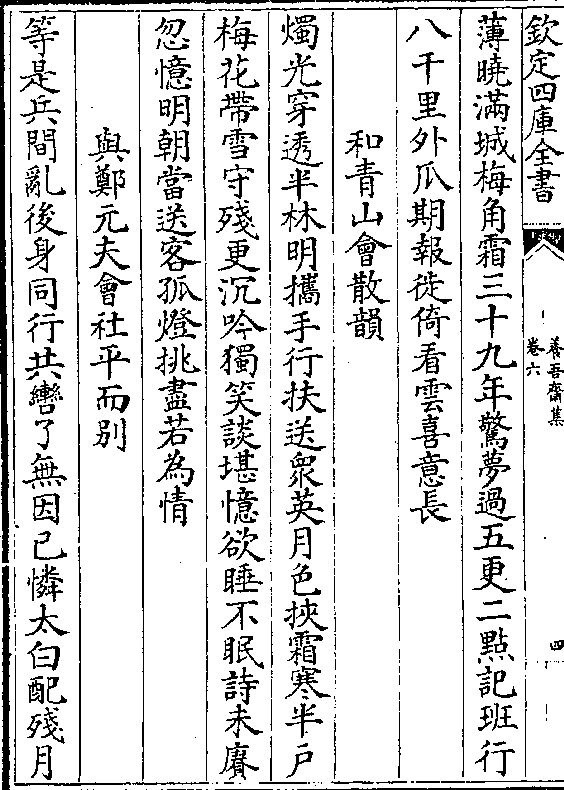 欽定四庫全書
養吾齋集
卷六
四
薄曉滿城梅角霜三十九年驚夢過五更二點記班行
八千里外瓜期報徙倚看雲喜意長
和青山會散韻
燭光穿透半林明攜手行扶送衆英月色挾霜寒半戶
梅花帶雪守殘更沉吟獨笑談堪憶欲睡不眠詩未賡
忽憶明朝當送客孤燈挑盡若為情
與鄭元夫會社平而别
等是兵間亂後身同行共轡了無因已憐太白配殘月